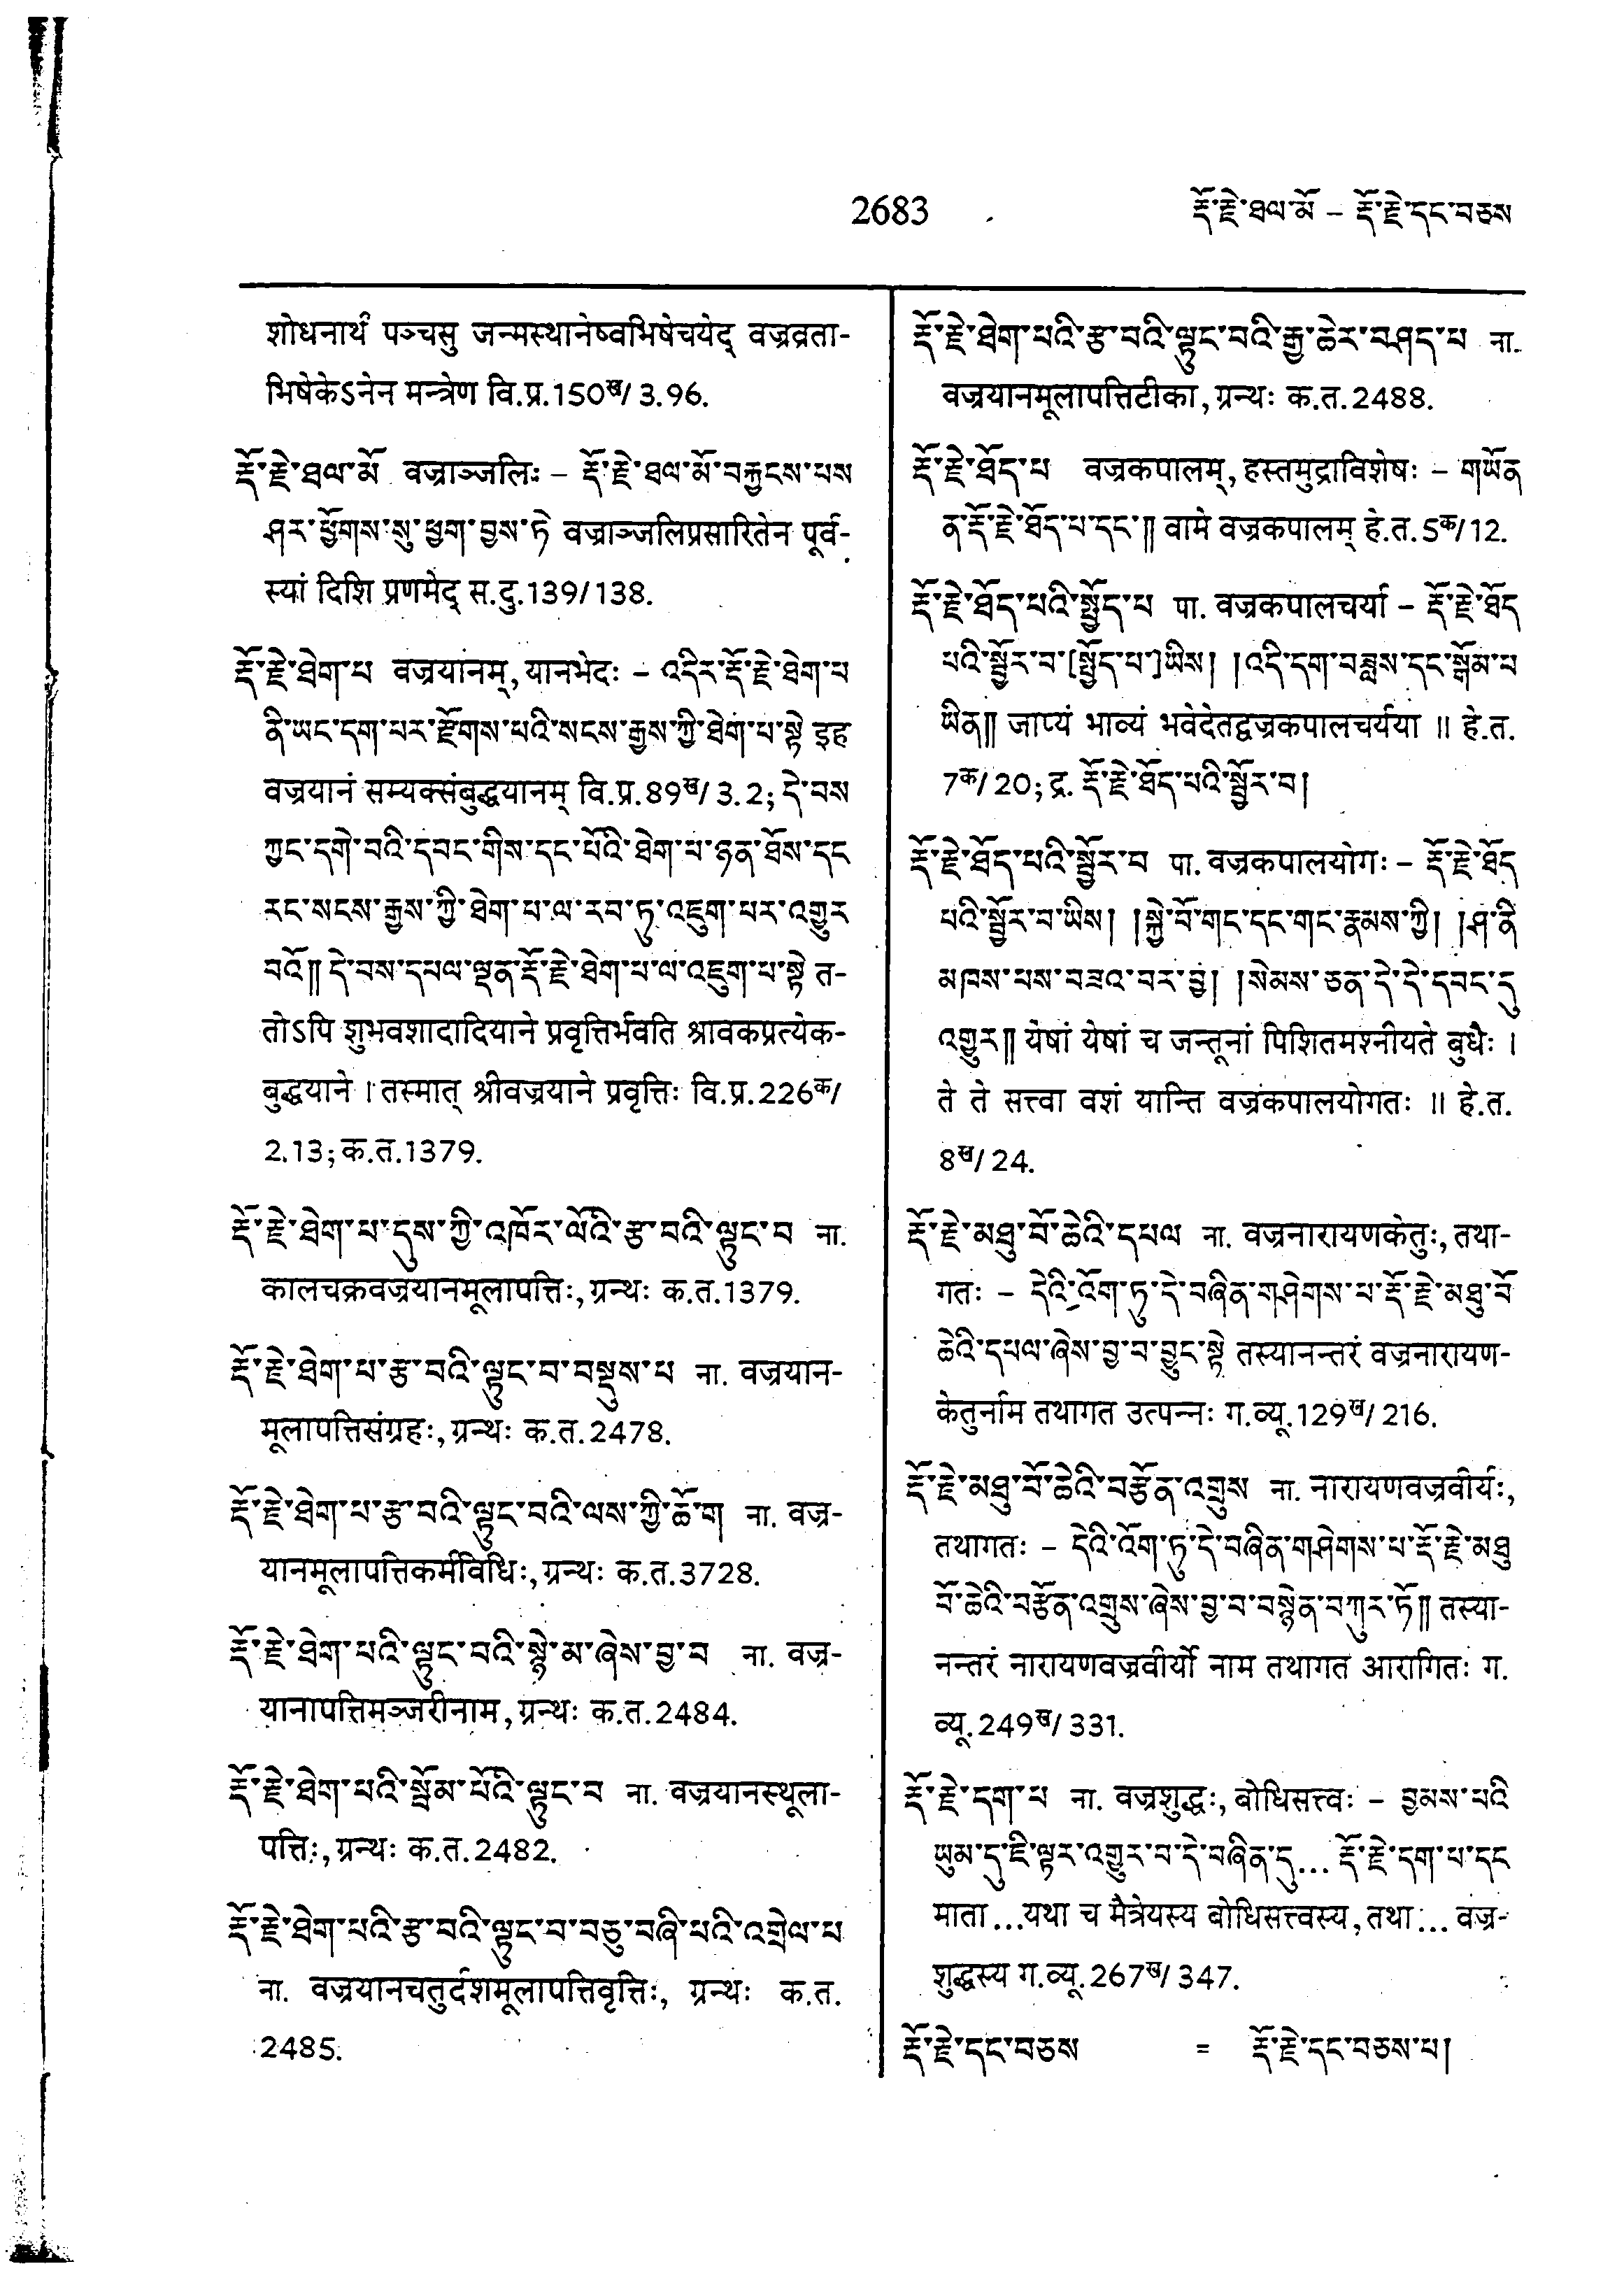 2683
རྡོ་རྗེ་ཐལ་མོ – རྡོ་རྗེ་དང་བཅས
शोधनार्थं पञ्चसु जन्मस्थानेष्वभिषेचयेद् वज्रव्रता-
भिषेकेऽनेन मन्त्रेण वि.प्र.150ख/3.96.
རྡོ་རྗེ་ཐལ་མོ वज्राञ्जलिः – རྡོ་རྗེ་ཐལ་མོ་བརྐྱངས་པས
ཤར་ཕྱོགས་སུ་ཕྱག་བྱས་ཏེ वज्राञ्जलिप्रसारितेन पूर्व-
स्यां दिशि प्रणमेद् स.दु.139/138.
རྡོ་རྗེ་ཐེག་པ वज्रयानम्, यानभेदः – འདིར་རྡོ་རྗེ་ཐེག་པ
ནི་ཡང་དག་པར་རྫོགས་པའི་སངས་རྒྱས་ཀྱི་ཐེག་པ་སྟེ इह
वज्रयानं सम्यक्संबुद्धयानम् वि.प्र.89ख/3.2; དེ་བས
ཀྱང་དགེ་བའི་དབང་གིས་དང་པོའི་ཐེག་པ་ཉན་ཐོས་དང
རང་སངས་རྒྱས་ཀྱི་ཐེག་པ་ལ་རབ་ཏུ་འཇུག་པར་འགྱུར
བའོ།། དེ་བས་དཔལ་ལྡན་རྡོ་རྗེ་ཐེག་པ་ལ་འཇུག་པ་སྟེ त-
तोऽपि शुभवशादादियाने प्रवृत्तिर्भवति श्रावकप्रत्येक-
बुद्धयाने । तस्मात् श्रीवज्रयाने प्रवृत्तिः वि.प्र.226क/
2.13; क.त.1379.
རྡོ་རྗེ་ཐེག་པ་དུས་ཀྱི་འཁོར་ལོའི་རྩ་བའི་ལྟུང་བ ना.
कालचक्रवज्रयानमूलापत्तिः, ग्रन्थः क.त.1379.
རྡོ་རྗེ་ཐེག་པ་རྩ་བའི་ལྟུང་བ་བསྡུས་པ ना. वज्रयान-
मूलापत्तिसंग्रहः, ग्रन्थः क.त.2478.
རྡོ་རྗེ་ཐེག་པ་རྩ་བའི་ལྟུང་བའི་ལས་ཀྱི་ཆོ་ག ना. वज्र-
यानमूलापत्तिकर्मविधिः, ग्रन्थः क.त.3728.
རྡོ་རྗེ་ཐེག་པའི་ལྟུང་བའི་སྙེ་མ་ཞེས་བྱ་བ ना. वज्र-
यानापत्तिमञ्जरीनाम, ग्रन्थः क.त.2484.
རྡོ་རྗེ་ཐེག་པའི་སྦོམ་པོའི་ལྟུང་བ ना. वज्रयानस्थूला-
पत्तिः, ग्रन्थः क.त.2482.
རྡོ་རྗེ་ཐེག་པའི་རྩ་བའི་ལྟུང་བ་བཅུ་བཞི་པའི་འགྲེལ་པ
ना. वज्रयानचतुर्दशमूलापत्तिवृत्तिः, ग्रन्थः क.त.
2485.
རྡོ་རྗེ་ཐེག་པའི་རྩ་བའི་ལྟུང་བའི་རྒྱ་ཆེར་བཤད་པ ना.
वज्रयानमूलापत्तिटीका, ग्रन्थः क.त.2488.
རྡོ་རྗེ་ཐོད་པ वज्रकपालम्, हस्तमुद्राविशेषः – གཡོན
ན་རྡོ་རྗེ་ཐོད་པ་དང་།། वामे वज्रकपालम् हे.त.5क/12.
རྡོ་རྗེ་ཐོད་པའི་སྤྱོད་པ पा. वज्रकपालचर्या – རྡོ་རྗེ་ཐོད
པའི་སྦྱོར་བ་[སྤྱོད་པ་]ཡིས། །འདི་དག་བཟླས་དང་སྒོམ་པ
ཡིན།། जाप्यं भाव्यं भवेदेतद्वज्रकपालचर्यया ॥ हे.त.
7क/20; द्र. རྡོ་རྗེ་ཐོད་པའི་སྦྱོར་བ།
རྡོ་རྗེ་ཐོད་པའི་སྦྱོར་བ पा. वज्रकपालयोगः – རྡོ་རྗེ་ཐོད
པའི་སྦྱོར་བ་ཡིས། །སྐྱེ་བོ་གང་དང་གང་རྣམས་ཀྱི། །ཤ་ནི
མཁས་པས་བཟའ་བར་བྱ། །སེམས་ཅན་དེ་དེ་དབང་དུ
འགྱུར།། येषां येषां च जन्तूनां पिशितमश्नीयते बुधैः ।
ते ते सत्त्वा वशं यान्ति वज्रकपालयोगतः ॥ हे.त.
8ख/24.
རྡོ་རྗེ་མཐུ་བོ་ཆེའི་དཔལ ना. वज्रनारायणकेतुः, तथा-
गतः – དེའི་འོག་ཏུ་དེ་བཞིན་གཤེགས་པ་རྡོ་རྗེ་མཐུ་བོ
ཆེའི་དཔལ་ཞེས་བྱ་བ་བྱུང་སྟེ तस्यानन्तरं वज्रनारायण-
केतुर्नाम तथागत उत्पन्नः ग.व्यू.129ख/216.
རྡོ་རྗེ་མཐུ་བོ་ཆེའི་བརྩོན་འགྲུས ना. नारायणवज्रवीर्यः,
तथागतः – དེའི་འོག་ཏུ་དེ་བཞིན་གཤེགས་པ་རྡོ་རྗེ་མཐུ
བོ་ཆེའི་བརྩོན་འགྲུས་ཞེས་བྱ་བ་བསྙེན་བཀུར་ཏོ།། तस्या-
नन्तरं नारायणवज्रवीर्यो नाम तथागत आरागितः ग.
व्यू.249ख/331.
རྡོ་རྗེ་དག་པ ना. वज्रशुद्धः, बोधिसत्त्वः – བྱམས་པའི
ཡུམ་དུ་ཇི་ལྟར་འགྱུར་བ་དེ་བཞིན་དུ... རྡོ་རྗེ་དག་པ་དང
माता...यथा च मैत्रेयस्य बोधिसत्त्वस्य, तथा... वज्र-
शुद्धस्य ग.व्यू.267ख/347.
རྡོ་རྗེ་དང་བཅས = རྡོ་རྗེ་དང་བཅས་པ།